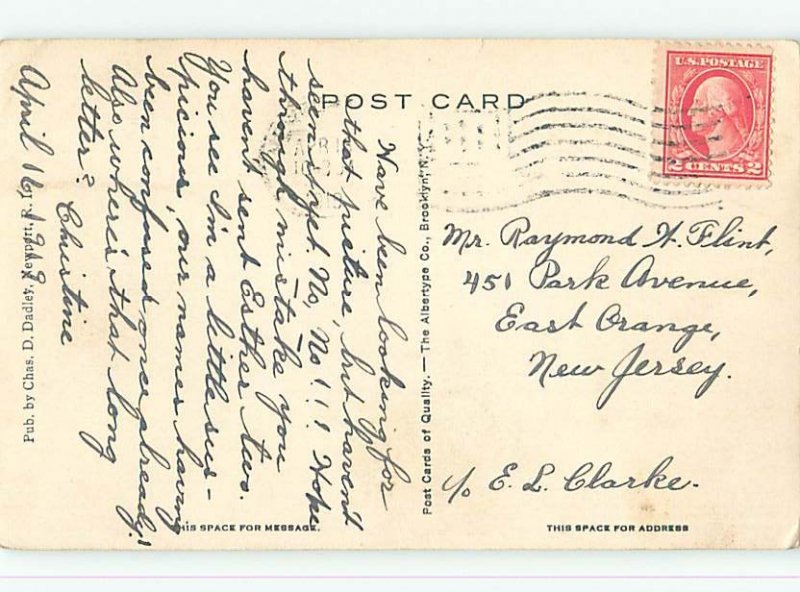 POST CARD
U.S. POSTAGE
2 CENTS 2
Have been looking for
that picture, but haven't
seen it yet. No, No!!! Hope
through mistake you
havent sent Esther two.
You see I'm a little sus-
picious, our names having
been confused once already!
Also where's that long
letter? Christine
April 16, 1918
Mr. Raymond H. Flint,
451 Park Avenue,
East Orange,
New Jersey.
c/o E. L. Clarke.
Pub. by Chas. D. Dadley, Newport, R. I.
Post Cards of Quality. — The Albertype Co., Brooklyn, N. Y.
THIS SPACE FOR MESSAGE.
THIS SPACE FOR ADDRESS